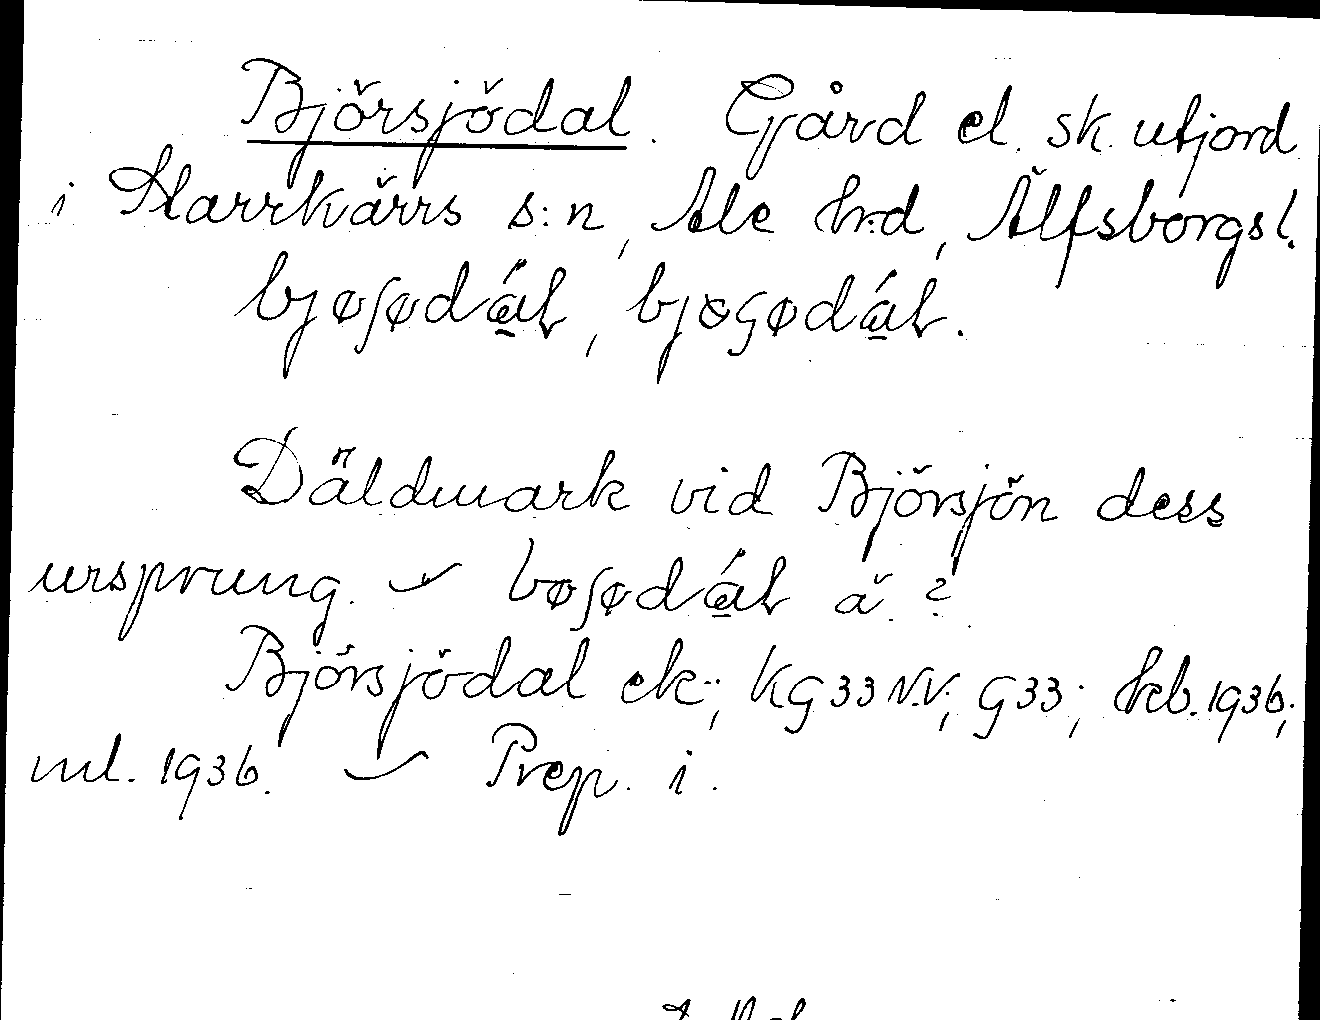 Björsjödal. Gård el. sk. utjord
i Starrkärrs s:n, Ale hrd, Älfsborgs l.
bjøʃødál, bjøʃødál.
Däldmark vid Björsjön dess
ursprung. bøʃødál ä.?
Björsjödal ek.; KG33NV; G33; hkb. 1936;
ml. 1936. Prep. i.